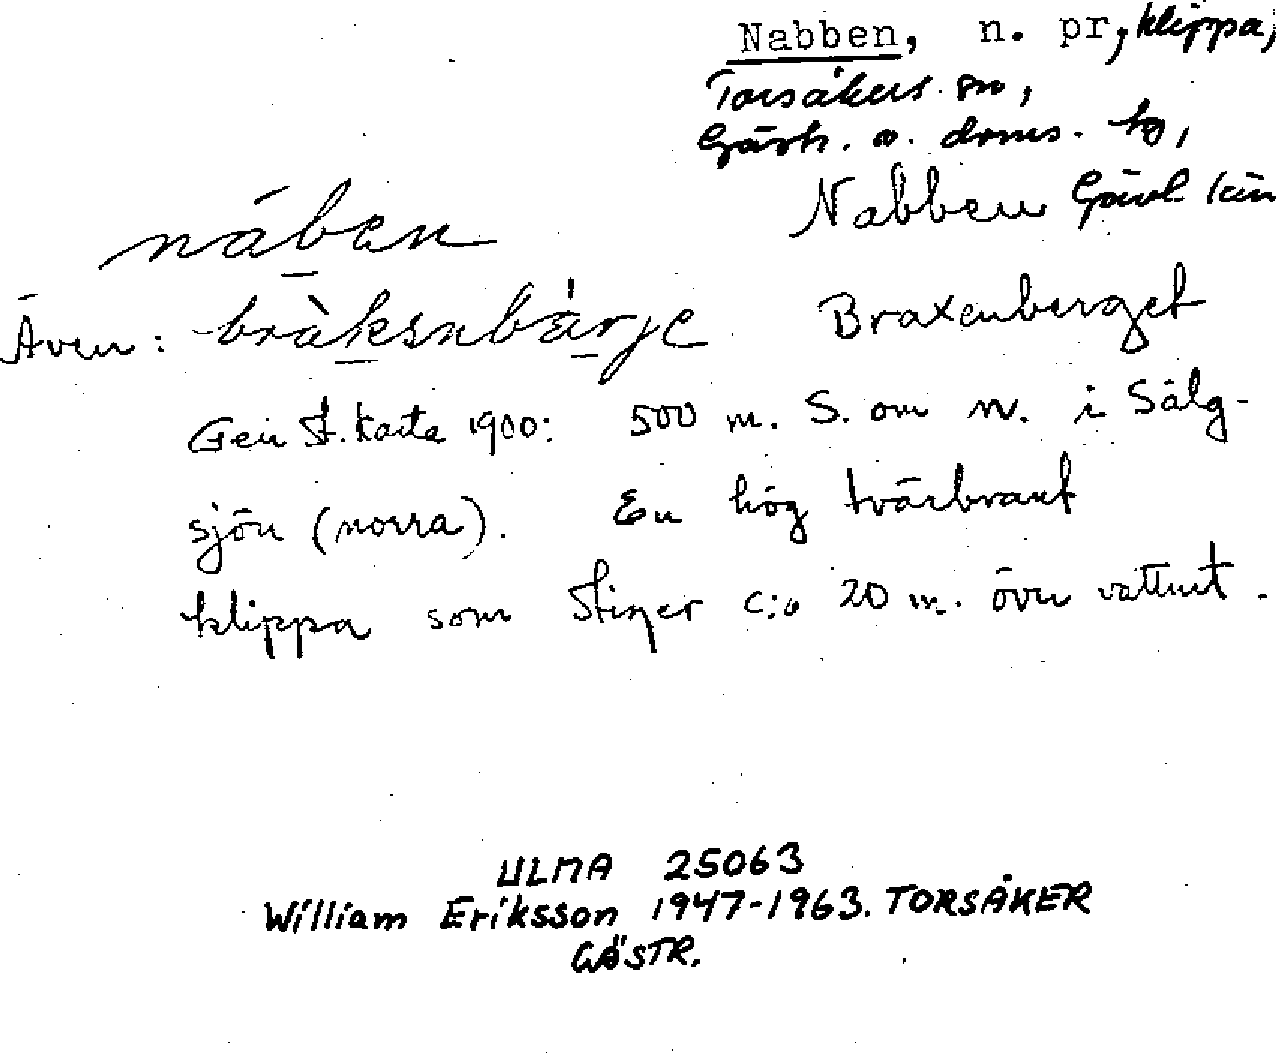 Nabben, n. pr, klippa,
Torsåkers sn,
Gästr. o. doms. hg,
Gävl län
náben Nabben
Även: bràksnbárje Braxenberget
Gen St. karta 1900: 500 m. S. om N. i Sälg-
sjön (norra). En hög tvärbrant
klippa som stiger c:a 20 m. över vattnet.
ULMA 25063
William Eriksson 1947-1963. TORSÅKER
GÄSTR.